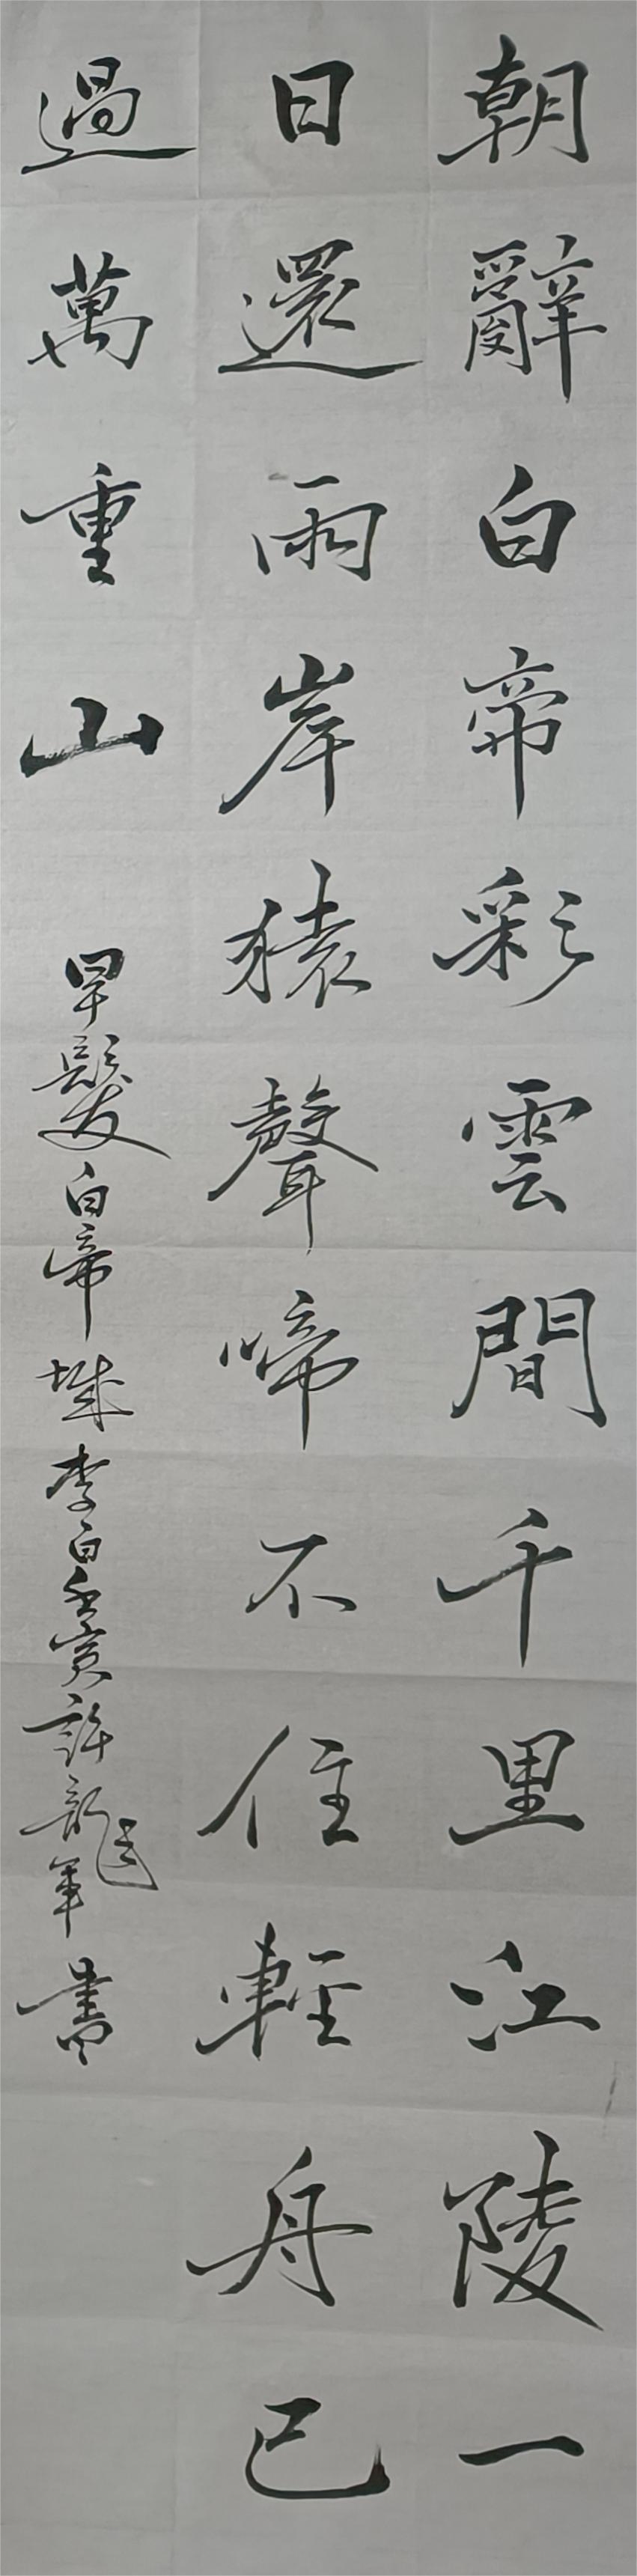 朝辭白帝彩雲間千里江陵一
日還兩岸猿聲啼不住輕舟已
過萬重山
早髮白帝城李白壬寅許龍軍書